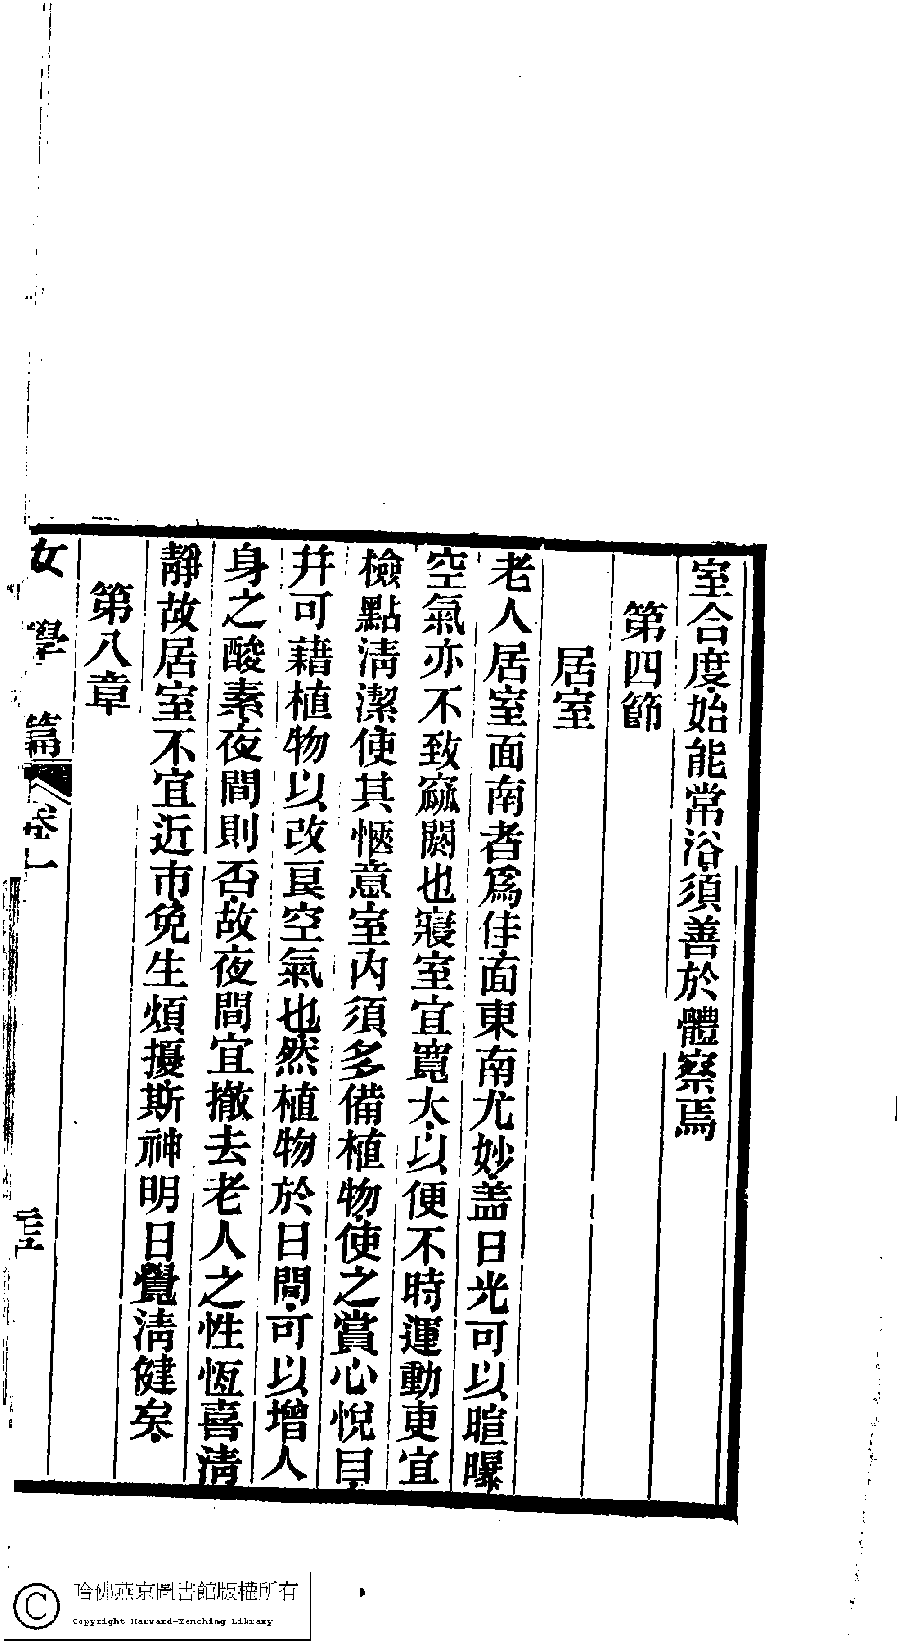 室合度始能常浴須善於體察焉
第四節
居室
老人居室面南者爲佳面東南尤妙蓋日光可以暄曝
空氣亦不致窳閼也寢室宜寬大以便不時運動更宜
檢點淸潔使其愜意室內須多備植物使之賞心悅目
幷可藉植物以改良空氣也然植物於日間可以增人
身之酸素夜間則否故夜間宜撤去老人之性恆喜淸
靜故居室不宜近市免生煩擾斯神明日覺淸健矣
第八章
女學篇 卷一
哈佛燕京圖書館版權所有
Copyright Harvard-Yenching Library